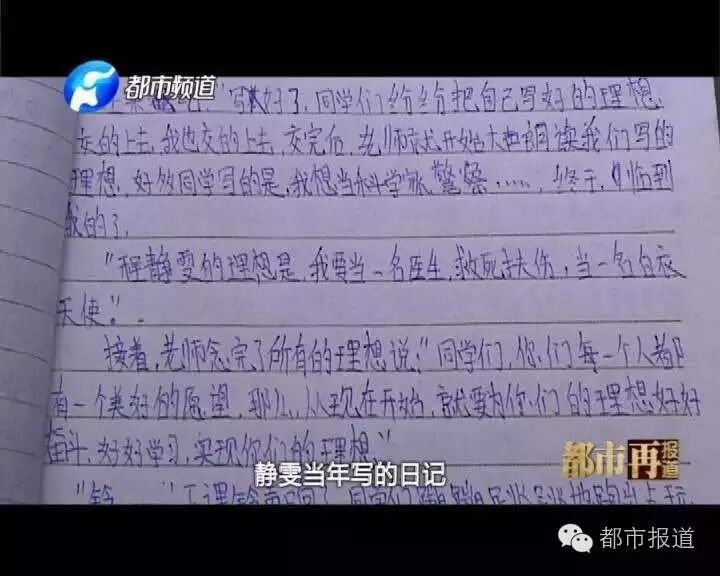 都市频道
写好了,同学们纷纷把自己写好的理想
交的上去,我也交的上去,交完后,老师就开始大概朗读我们写的
理想,好多同学写的是,我想当科学家,警察……,终于,临到
我的了,
"程静雯的理想是,我要当一名医生,救死扶伤,当一名白衣
天使"。
接着,老师念完了所有的理想说:"同学们,你们每一个人都
有一个美好的愿望,那么,从现在开始,就要为你们的理想好好
奋斗,好好学习,实现你们的理想。"
都市再报道
静雯当年写的日记
"铃……"下课铃声
都市报道